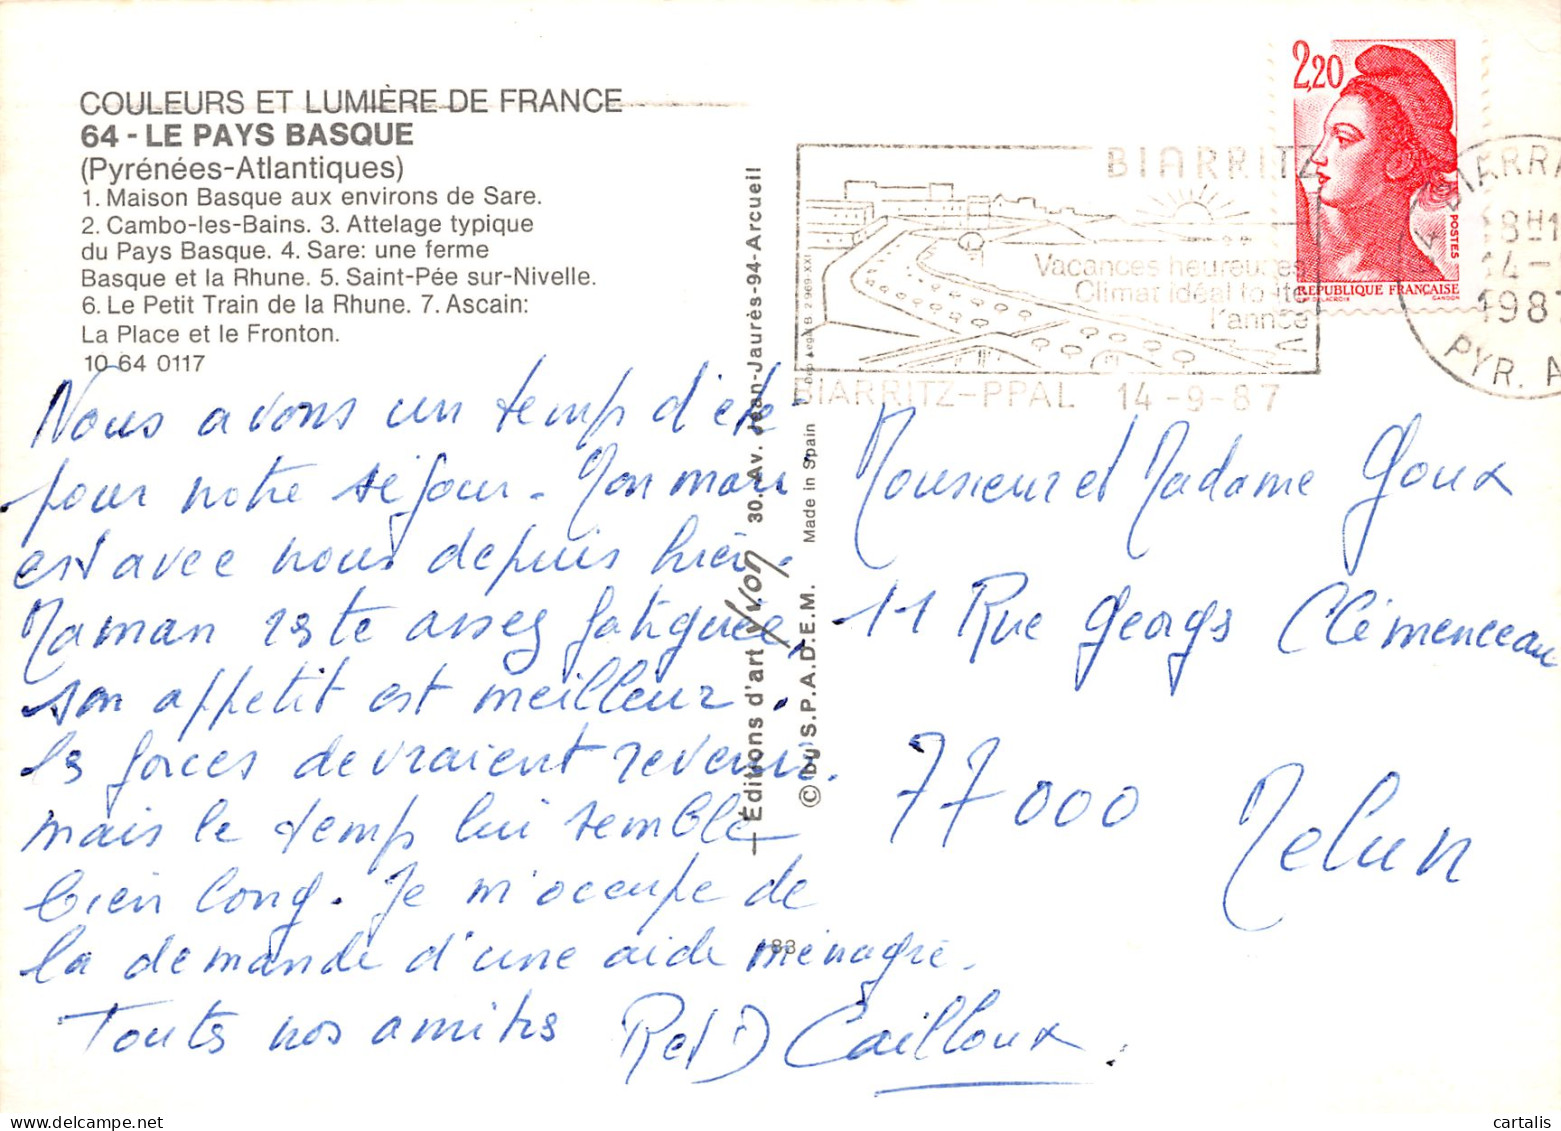 COULEURS ET LUMIÈRE DE FRANCE
64 - LE PAYS BASQUE
(Pyrénées-Atlantiques)
1. Maison Basque aux environs de Sare.
2. Cambo-les-Bains. 3. Attelage typique
du Pays Basque. 4. Sare: une ferme
Basque et la Rhune. 5. Saint-Pée sur-Nivelle.
6. Le Petit Train de la Rhune. 7. Ascain:
La Place et le Fronton.
10 64 0117
Nous avons un temps d'été
pour notre séjour. Mon mari
est avec nous depuis hier.
Maman reste assez fatiguée,
son appétit est meilleur.
les forces devraient revenir.
mais le temps lui semble
bien long. Je m'occupe de
la demande d'une aide ménagère.
Toutes nos amitiés R et D Cailloux.
— Éditions d'art Yvon 30. Av. Jean-Jaurès-94-Arcueil
© by S.P.A.D.E.M. Made in Spain
83
2,20
POSTES
REPUBLIQUE FRANÇAISE
GANDON
BIARRITZ
Vacances heureuses
Climat idéal toute
l'année
BIARRITZ-PPAL 14-9-87
18H1
14-
1987
PYR. A
Monsieur et Madame Goux
11 Rue Georges Clémenceau
77000 Melun
cartalis
www.delcampe.net